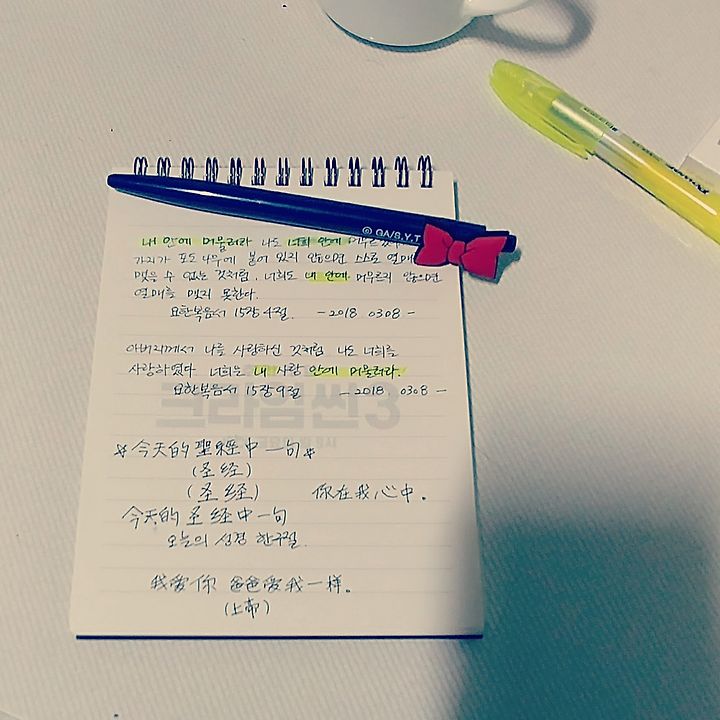 © GA/S.Y.T
내 안에 머물러라 나도 너희 안에
가지가 포도나무에 붙어 있지 않으면 스스로 열매
맺을 수 없는 것처럼, 너희도 내 안에 머무르지 않으면
열매를 맺지 못한다.
요한복음서 15장 4절. -2018 0308-
아버지께서 나를 사랑하신 것처럼 나도 너희를
사랑하였다. 너희는 내 사랑 안에 머물러라.
요한복음서 15장 9절 -2018 0308-
크라임씬3
☆今天的聖經中一句☆
(圣经)
(圣经) 你在我心中。
今天的圣经中一句
오늘의 성경 한구절.
我愛你 爸爸愛我一样。
(上帝)